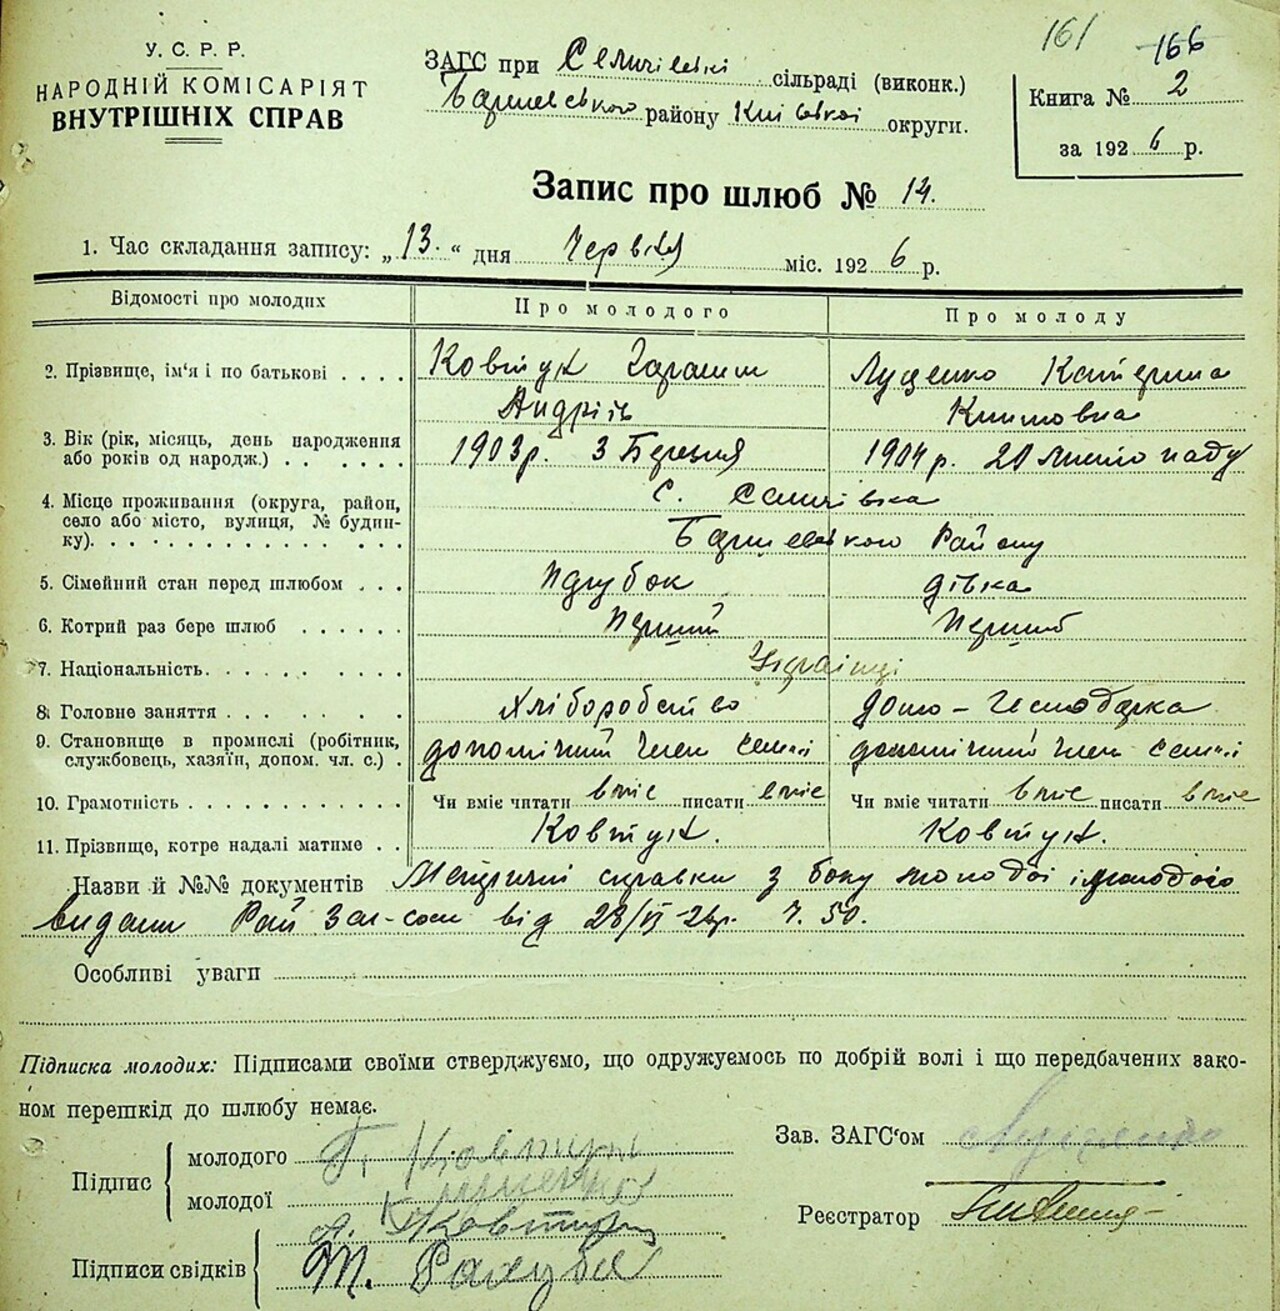 161
166
У. С. Р. Р.
НАРОДНІЙ КОМІСАРІЯТ
ВНУТРІШНІХ СПРАВ
ЗАГС при Семичівські сільраді (виконк.)
Баришевського району Київської округи.
Книга № 2
за 1926 р.
Запис про шлюб № 14.
1. Час складання запису: „13.“ дня Червня міс. 1926 р.
Відомості про молодих Про молодого Про молоду
2. Прізвище, ім‘я і по батькові . . . . Ковтун Гарасим Луценко Катерина
Андрійов Климовна
3. Вік (рік, місяць, день народження
або років од народж.) . . . . . . . 1903р. 3 Березня 1904 р. 20 Листопаду
4. Місце проживання (округа, район,
село або місто, вулиця, № будин-
ку). . . . . . . . . . . . . . . с. Селичівка
Баришевського Району
5. Сімейний стан перед шлюбом . . . парубок дівка
6. Котрий раз бере шлюб . . . . . . Перший Перший
7. Національність. . . . . . . . . . Українці
8. Головне заняття . . . . . . . . Хліборобство домо-Господарка
9. Становище в промислі (робітник,
службовець, хазяїн, допом. чл. с.) . допомічний член семьї допомічний член семьї
10. Грамотність . . . . . . . . . . . Чи вміє читати вміє писати вміє Чи вміє читати вміє писати вміє
11. Прізвище, котре надалі матиме . . Ковтун. Ковтун.
Назви й №№ документів Метричні справки з боку молодої і молодого
видани Рай Заг-сом від 28/VI-26р. Ч. 50.
Особливі уваги
Підписка молодих: Підписами своїми стверджуємо, що одружуємось по добрій волі і що передбачених зако-
ном перешкід до шлюбу немає.
Підпис
молодого Г. Ковтун
молодої
Зав. ЗАГС‘ом
Реєстратор
Підписи свідків
А. Ковтун